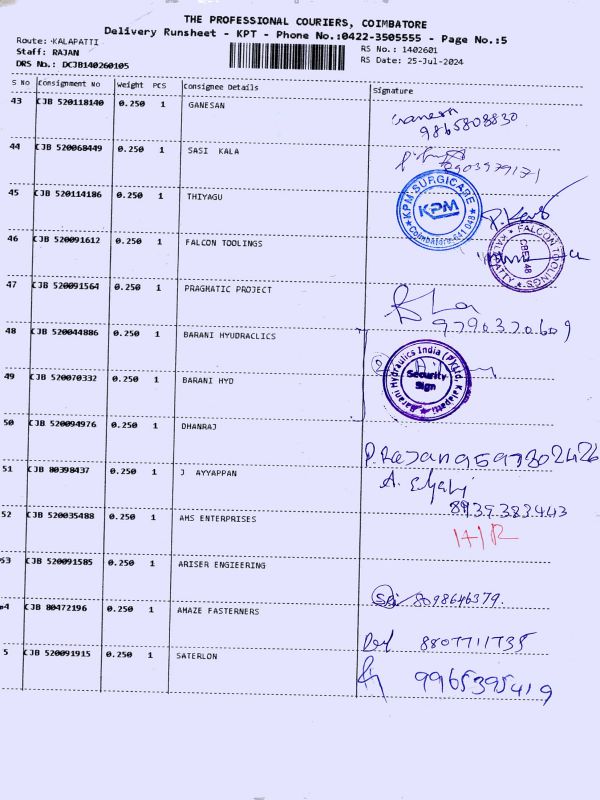 THE PROFESSIONAL COURIERS, COIMBATORE
Delivery Runsheet - KPT - Phone No.:0422-3505555 - Page No.:5
Route: KALAPATTI
RS No.: 1402601
Staff: RAJAN
RS Date: 25-Jul-2024
DRS No.: DCJB140260105
S No Consignment No Weight PCS Consignee Details Signature
43 CJB 520118140 0.250 1 GANESAN
9865808830
44 CJB 520068449 0.250 1 SASI KALA
45 CJB 520114186 0.250 1 THIYAGU
KPM SURGICARE
KPM
Coimbatore-641 048
46 CJB 520091612 0.250 1 FALCON TOOLINGS
FALCON TOOLINGS
47 CJB 520091564 0.250 1 PRAGMATIC PROJECT
9790370609
48 CJB 520044886 0.250 1 BARANI HYUDRACLICS
Barani Hydraulics India (P) Ltd, Kalapatti
Security
Sign
49 CJB 520070332 0.250 1 BARANI HYD
50 CJB 520094976 0.250 1 DHANRAJ
P. Rajan 9597202426
51 CJB 80398437 0.250 1 J AYYAPPAN
8939383443
52 CJB 520035488 0.250 1 AHS ENTERPRISES
53 CJB 520091585 0.250 1 ARISER ENGIEERING
8098646379
4 CJB 80472196 0.250 1 AMAZE FASTERNERS
8807711735
5 CJB 520091915 0.250 1 SATERLON
9965395419